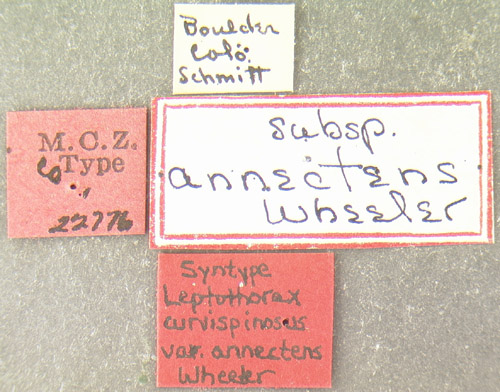 Boulder
Colo.
Schmitt
M.C.Z.
Co Type
22776
subsp.
annectens
Wheeler
Syntype
Leptothorax
curvispinosus
var. annectens
Wheeler